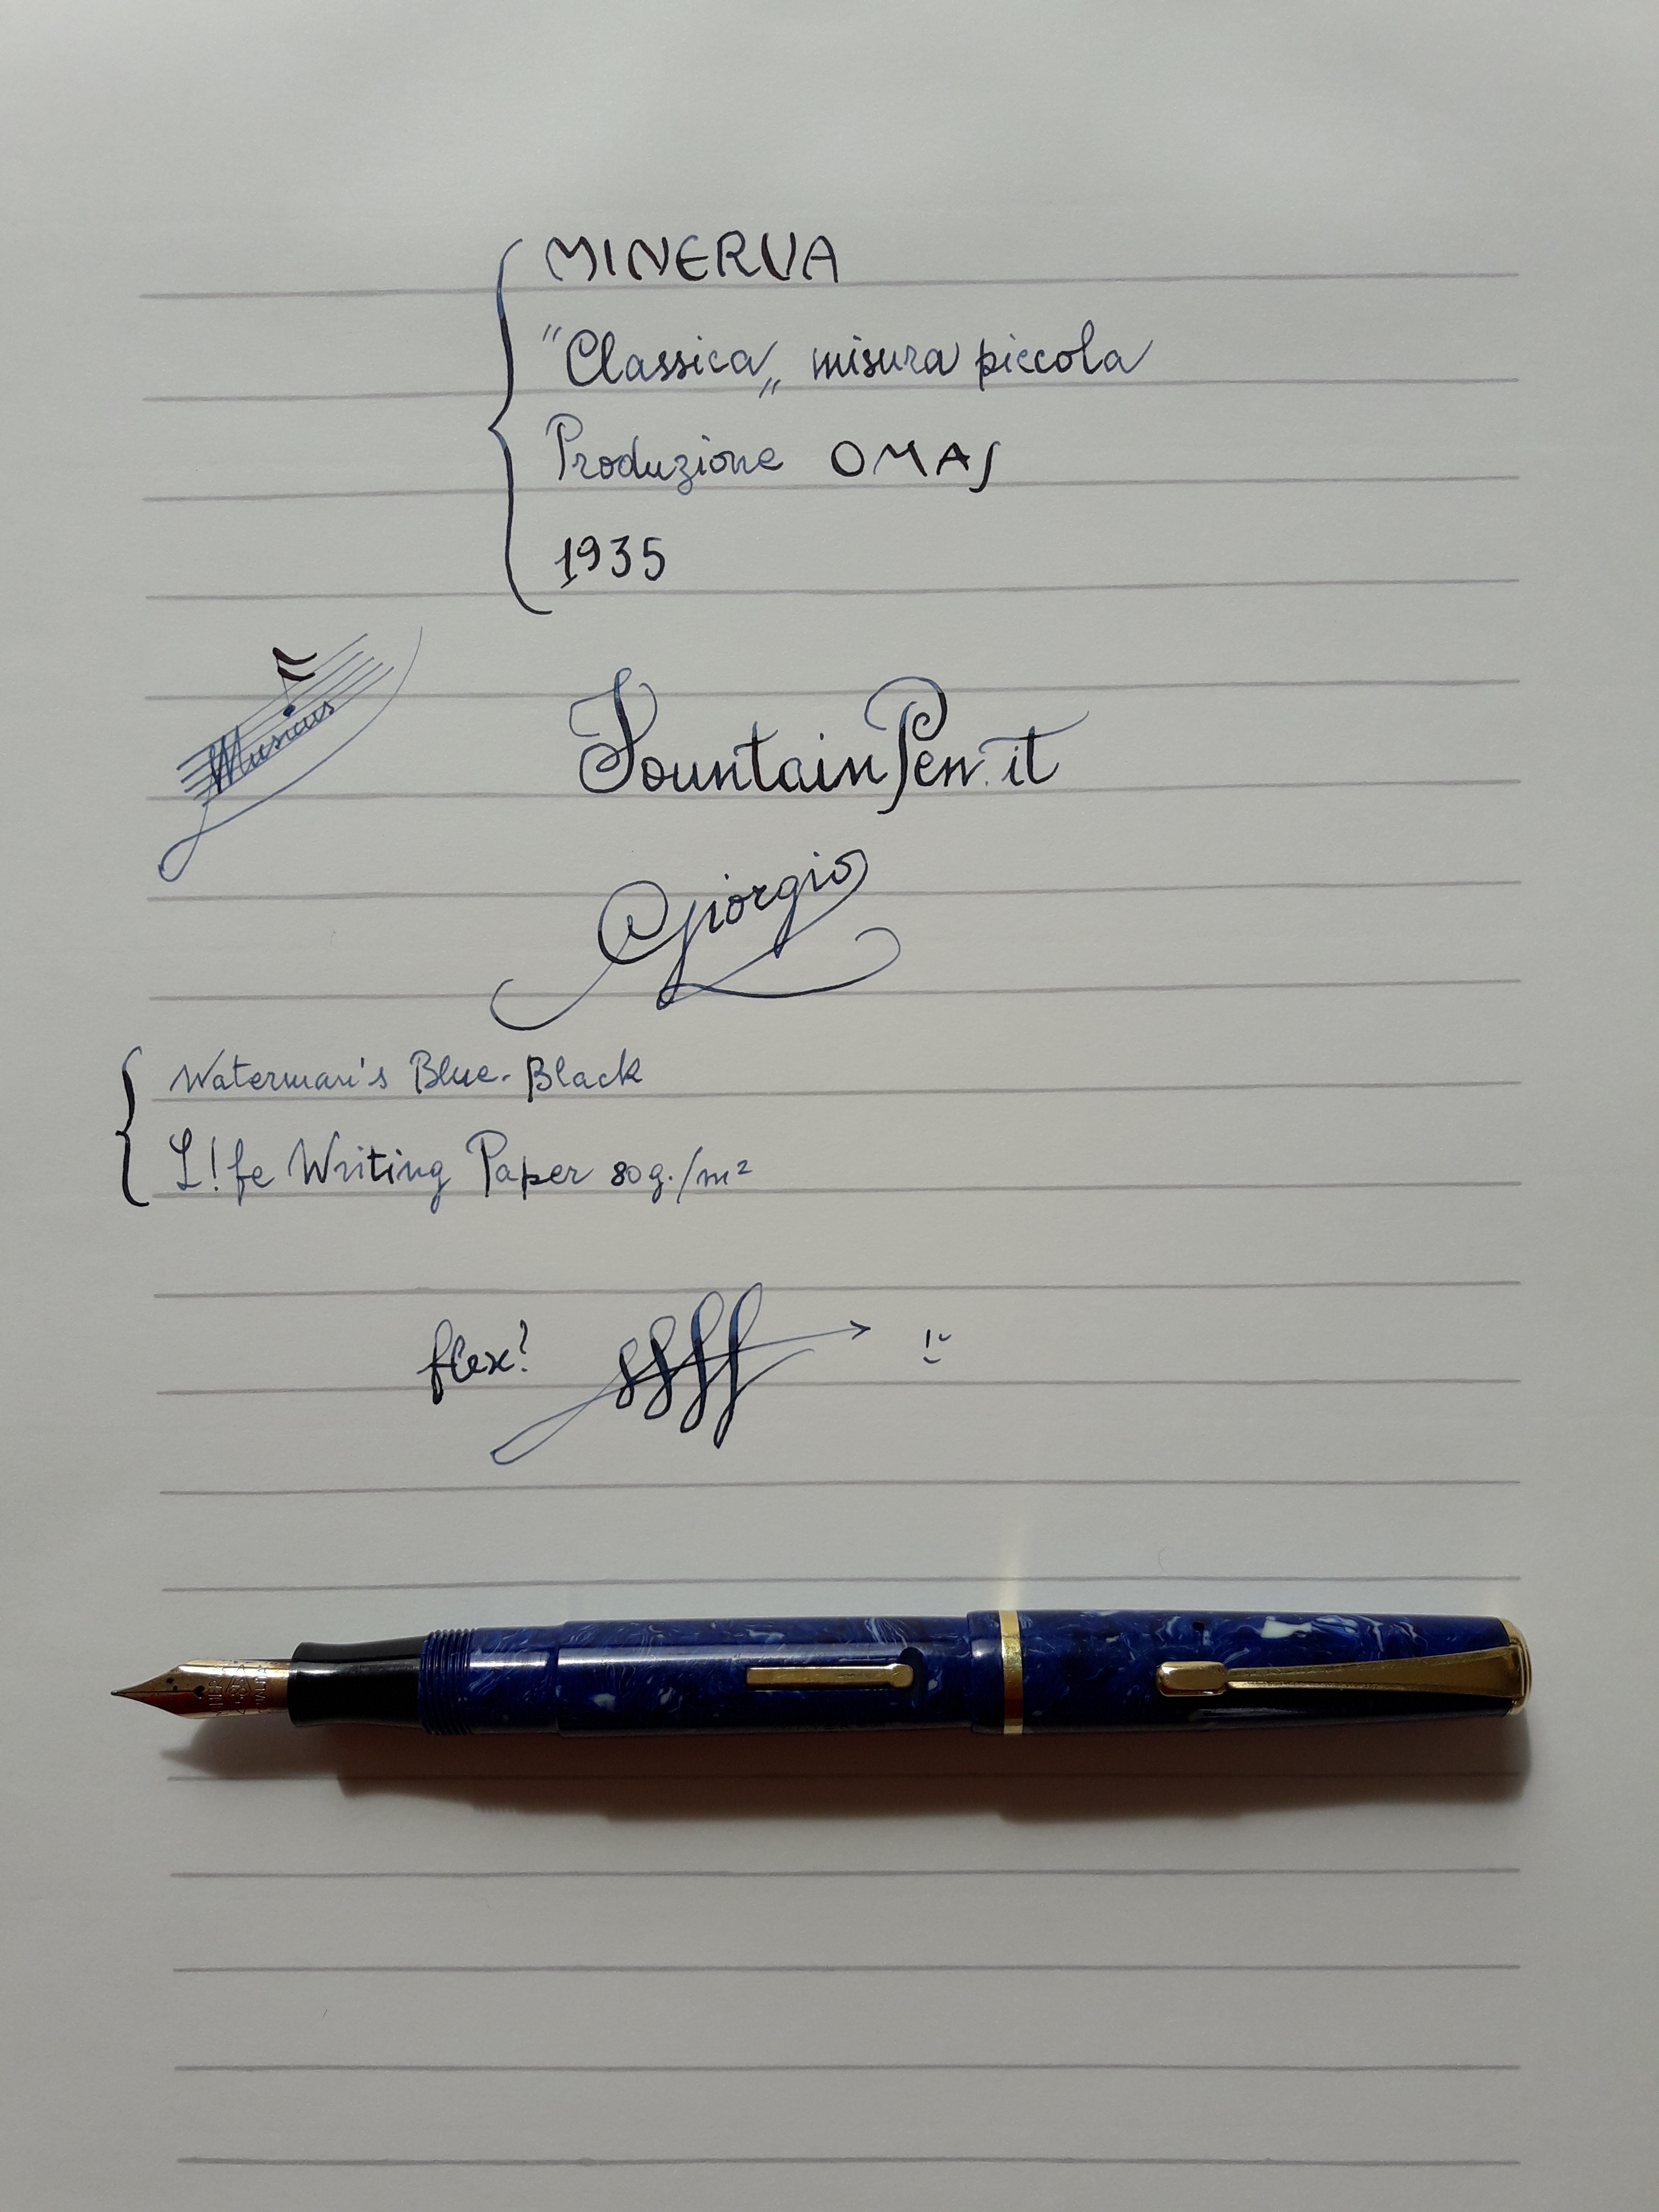 MINERVA
"Classica„ misura piccola
Produzione OMAS
1935
Musicus
FountainPen.it
Giorgio
Waterman's Blue-Black
L!fe Writing Paper 80g./m²
flex?